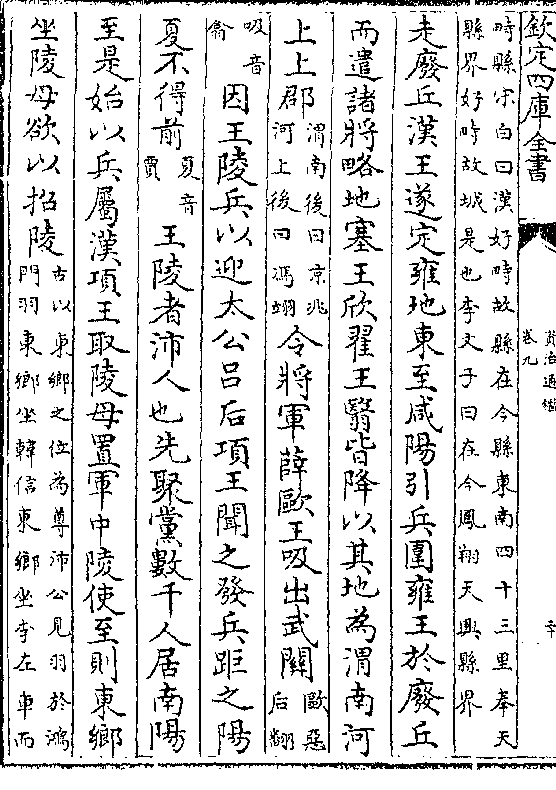 欽定四庫全書
資治通鑑
卷九
時縣宋白曰漢好畤故縣在今縣東南四十三里奉天
縣界好畤故城是也李文子曰在今鳳翔天興縣界
走廢丘漢王遂定雍地東至咸陽引兵圍雍王於廢丘
而遣諸將略地塞王欣翟王翳皆降以其地為渭南河
上上郡渭南後曰京兆河上後曰馮翊令將軍薛歐王吸出武關歐惡后翻
吸音翕因王陵兵以迎太公吕后項王聞之發兵距之陽
夏不得前夏音賈王陵者沛人也先聚黨數千人居南陽
至是始以兵屬漢項王取陵母置軍中陵使至則東鄉
坐陵母欲以招陵古以東鄉之位為尊沛公見羽於鴻門羽東鄉坐韓信東鄉坐李左車而